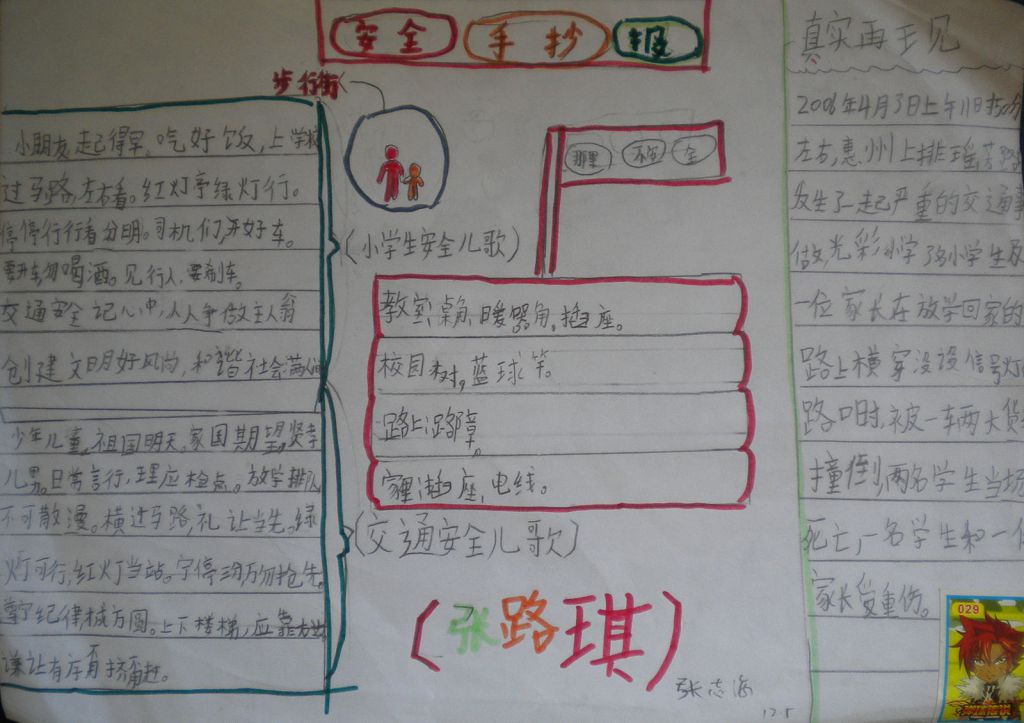 安全 手抄报
步行街
小朋友,起得早。吃好饭,上学校
过马路,左右看。红灯停绿灯行。
停停行行看分明。司机们,开好车。
要开车勿喝酒。见行人,要刹车。
交通安全记心中,人人争做主人翁
创建文明好风尚,和谐社会满人间
(小学生安全儿歌)
少年儿童,祖国明天。家国期望,贤孝
儿男。日常言行,理应检点。放学排队
不可散漫。横过马路,礼让当先。绿
灯可行,红灯当站。宁停三分勿抢先。
遵守纪律,械方圆。上下楼梯,应靠右边
谦让有序,挤莫赶。
(交通安全儿歌)
那里 不安 全
教室,桌角,暖器角,插座。
校园树,蓝球竿。
路上,路障。
家里,插座,电线。
(张路琪)
张志海
12.5
真实再王见
2006年4月3日上午11时50分
左右,惠州上排瑶芳路
发生了一起严重的交通事
故,光彩小学3名小学生及
一位家长在放学回家的
路上横穿没设信号灯
路口时,被一车两大货
撞倒,两名学生当场
死亡,一名学生和一位
家长受重伤。
029